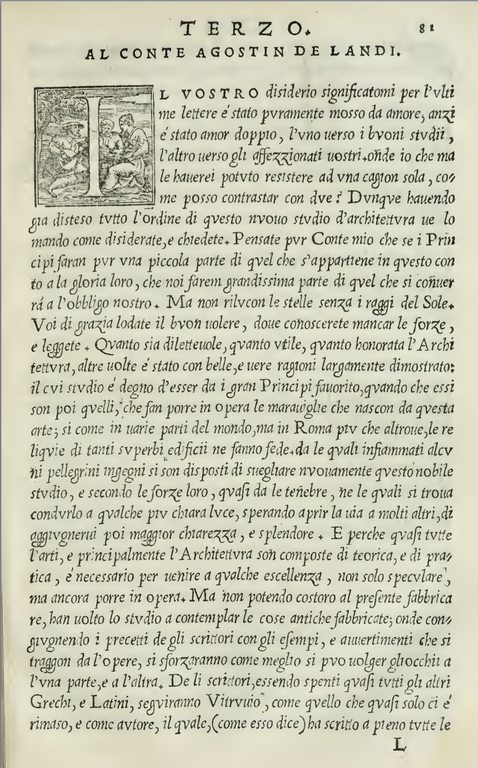 TERZO. 81
AL CONTE AGOSTIN DE LANDI.
IL VOSTRO disiderio significatomi per l'vlti
me lettere é stato pvramente mosso da amore, anzi
é stato amor doppio, l'vno uerso i bvoni stvdii,
l'altro uerso gli affezzionati uostri. onde io che ma
le hauerei potvto resistere ad vna cagion sola, co=
me posso contrastar con dve? Dvnqve hauendo
gia disteso tvtto l'ordine di qvesto nvouo stvdio d'architettvra ue lo
mando come disiderate, e chiedete. Pensate pvr Conte mio che se i Prin
cipi faran pvr vna piccola parte di qvel che s'appartiene in qvesto con
to a la gloria loro, che noi farem grandissima parte di qvel che si conuer
rà a l'obbligo nostro. Ma non rilvcon le stelle senza i raggi del Sole.
Voi di grazia lodate il bvon uolere, doue conoscerete mancar le forze,
e leggete. Qvanto sia diletteuole, qvanto vtile, qvanto honorata l'Archi
tettvra, altre uolte é stato con belle, e uere ragioni largamente dimostrato:
il cvi stvdio é degno d'esser da i gran Principi fauorito, qvando che essi
son poi qvelli, che fan porre in opera le marauiglie che nascon da qvesta
arte; si come in uarie parti del mondo, ma in Roma piv che altroue, le re
liqvie di tanti svperbi edificii ne fanno fede. da le qvali infiammati alcv
ni pellegrini ingegni si son disposti di suegliare nvouamente qvesto nobile
stvdio, e secondo le forze loro, qvasi da le tenebre, ne le qvali si troua
condvrlo a qvalche piv chiara lvce, sperando aprir la uia a molti altri, di
aggivgnerui poi maggior chiarezza, e splendore. E perche qvasi tvtte
l'arti, e principalmente l'Architettvra son composte di teorica, e di pra=
tica, é necessario per uenire a qvalche escellenza, non solo specvlare,
ma ancora porre in opera. Ma non potendo costoro al presente fabbrica
re, han uolto lo stvdio a contemplar le cose antiche fabbricate; onde con=
givgnendo i precetti de gli scrittori con gli esempi, e auuertimenti che si
traggon da l'opere, si sforzaranno come meglio si pvo uolger gli occhi a
l'vna parte, e a l'altra. De li scrittori, essendo spenti qvasi tvtti gli altri
Grechi, e Latini, segviranno Vitrvuio, come qvello che qvasi solo ci é
rimaso, e come avtore, il qvale, (come esso dice) ha scritto a pieno tvtte le
L